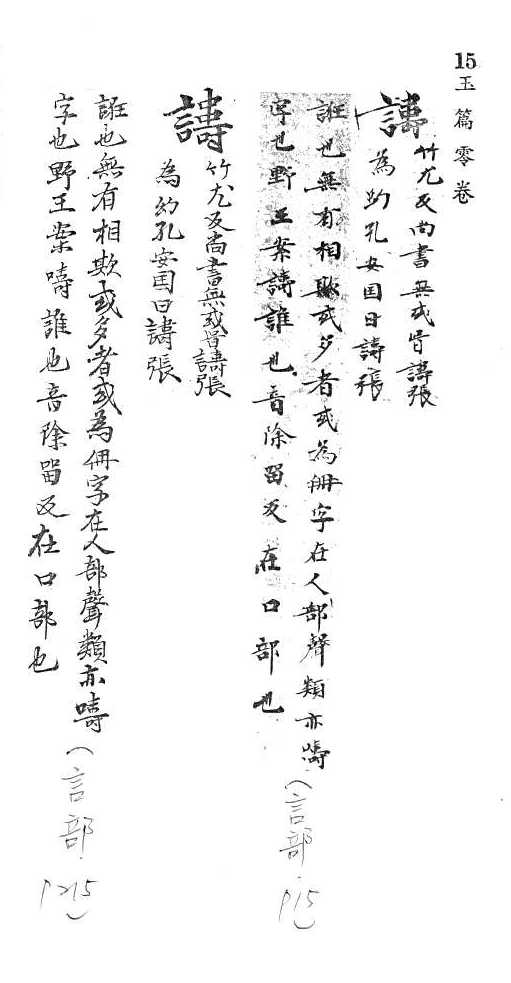 15 玉篇零卷
譸
竹尤反尚書無或胥譸張
為㓜孔安国曰譸張
誑也無有相欺或夛者或為侜字在人部聲類亦嚋
字也野王案譸誰也音除留反在口部也
(言部. P15)
譸
竹尤反尚書無或胥譸張
為幻孔安国曰譸張
誑也無有相欺或夛者或為侜字在人部聲類亦嚋
字也野王案嚋誰也音除留反在口部也
(言部. P215)